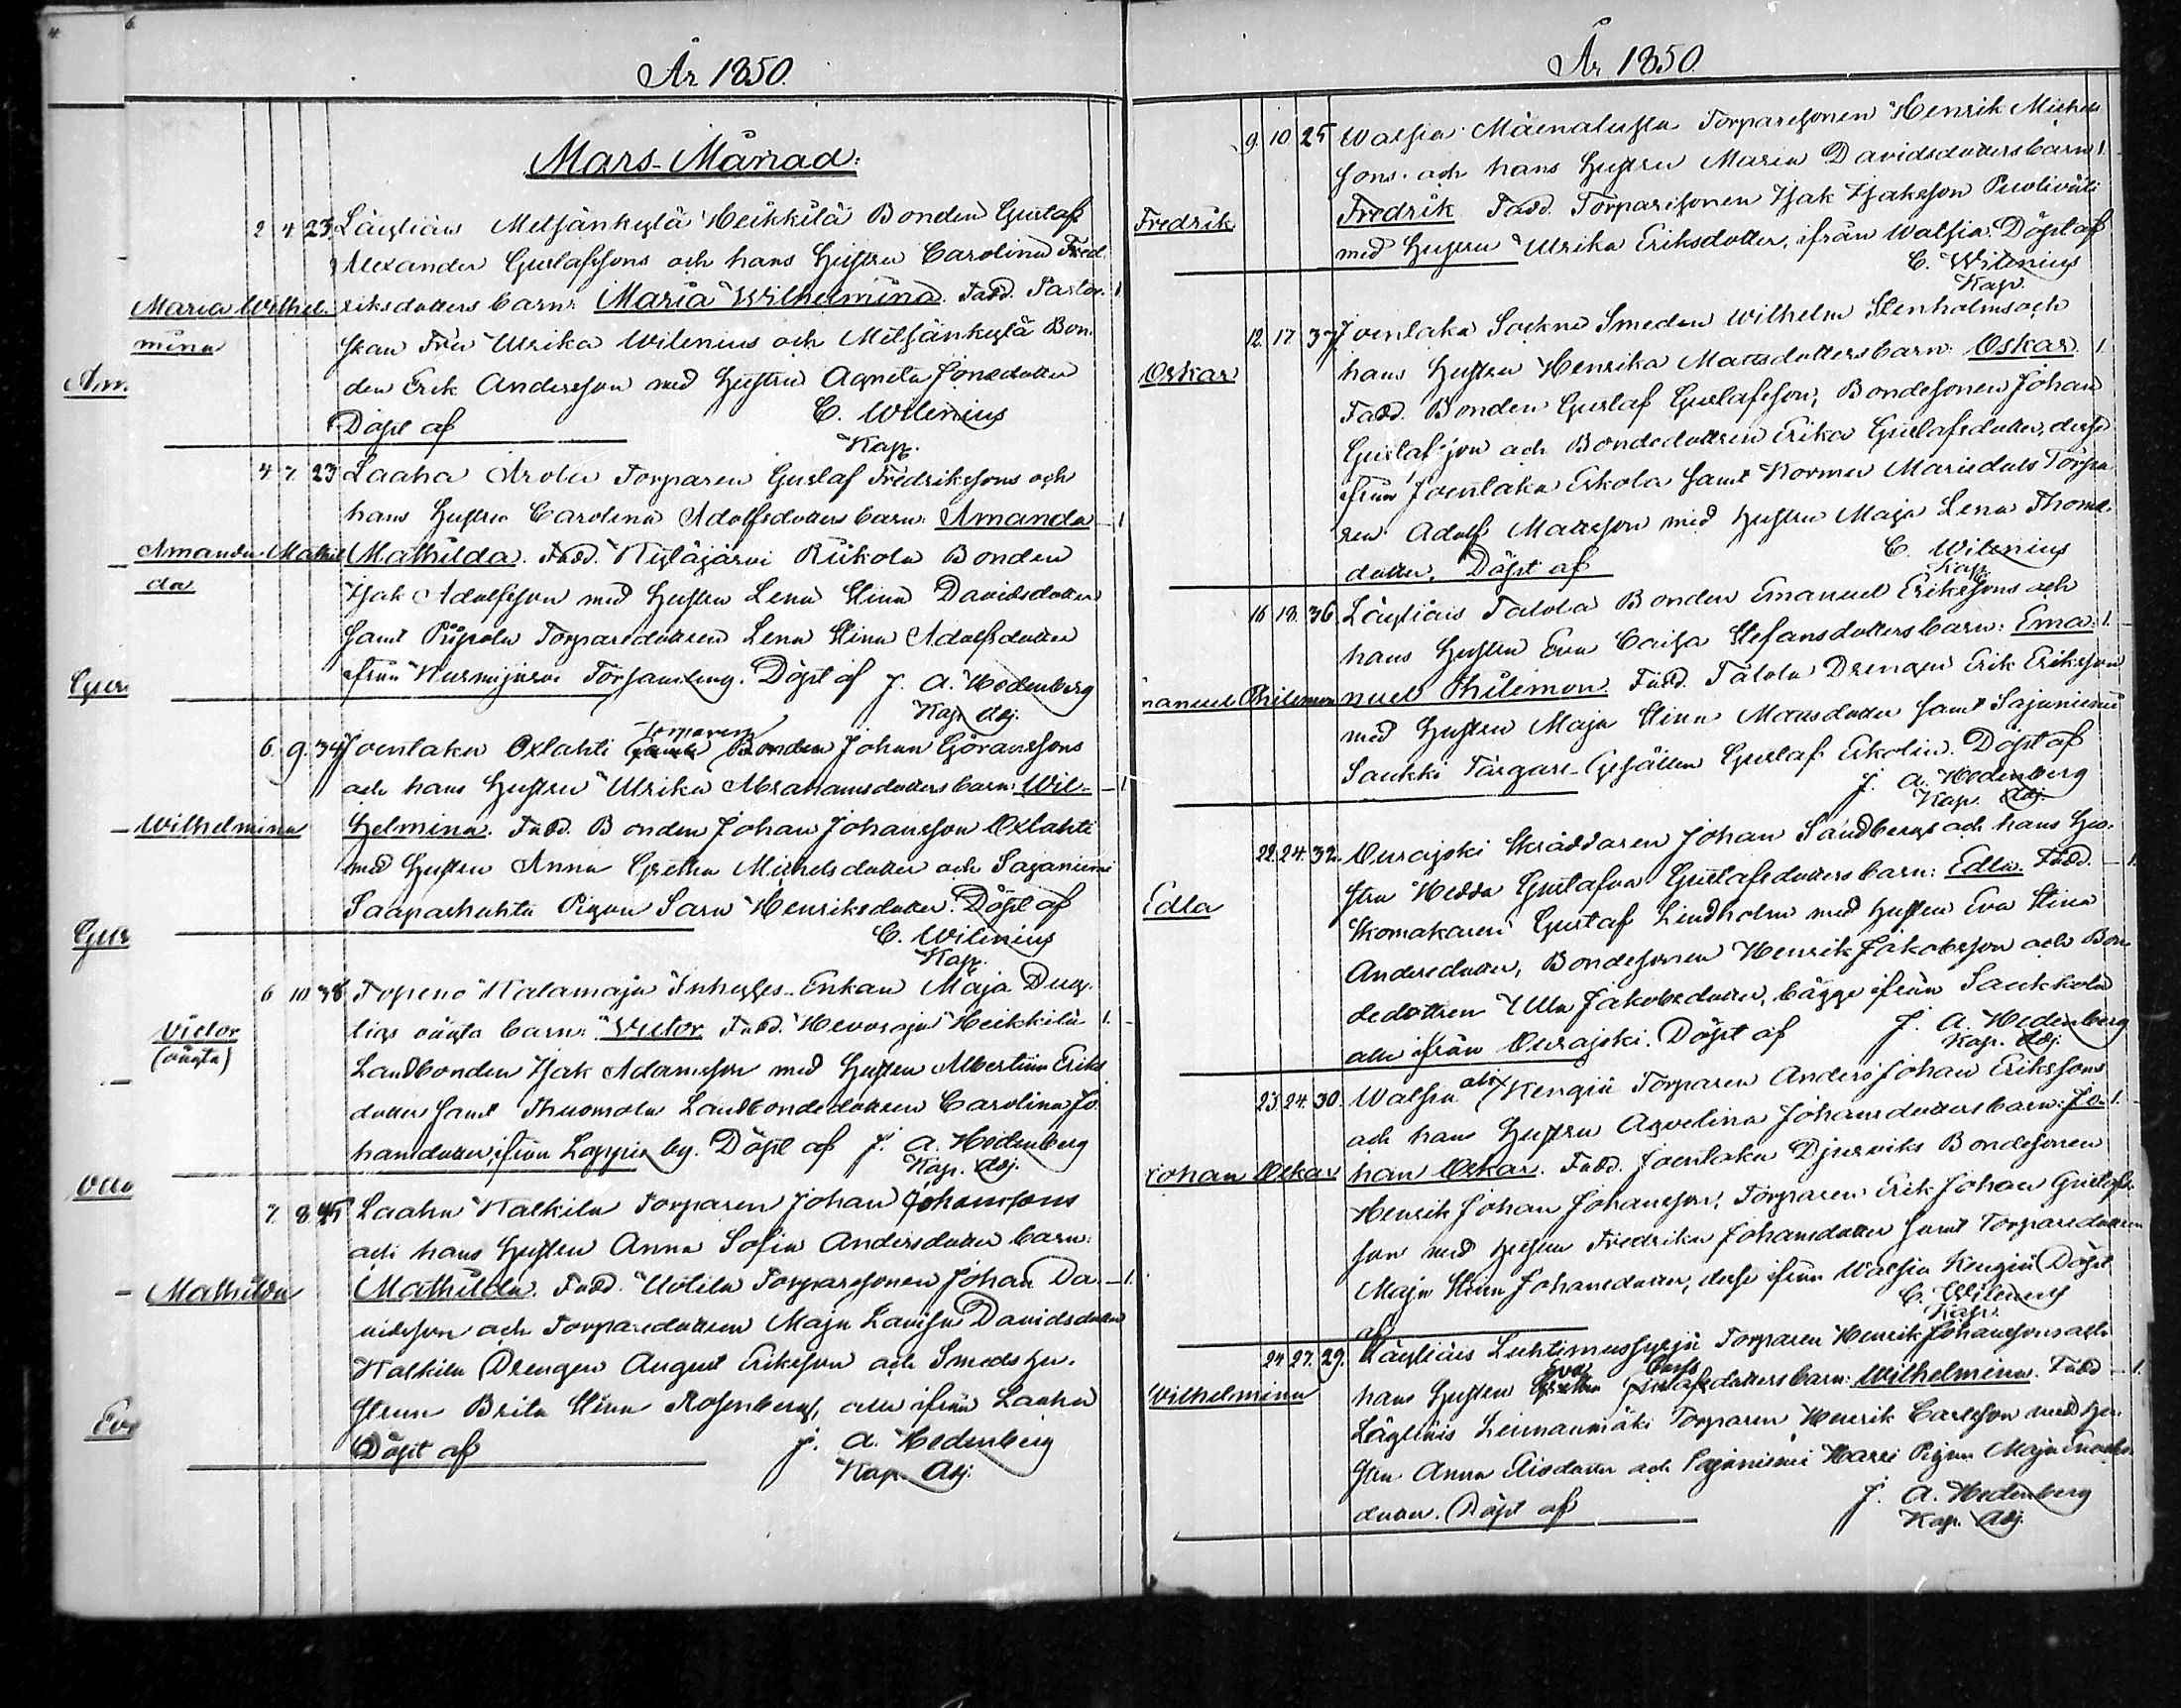 År 1850.
Mars-Månad:
2 4 23 Lägliäis Metsänkylä Heikkilä Bonden Gustaf
Alexander Gustafssons och hans Hustru Carolina Fred
Maria Wilhel- riksdotters barn: Maria Wilhelmina. Fadd. Pastor- 1
mina
skan Fru Ulrika Wilenius och Metsänkylä Bon-
den Erik Andersson med Hustru Agneta Jonsdotter
Döpt af C. Wilenius
Kap.
4 7 23 Laaha Arola Torparen Gustaf Fredrikssons och
hans Hustru Carolina Adolfsdotters barn: Amanda 1
Amanda Mathil Mathilda. Fadd. Kyläjärvi Riikola Bonden
da
Isak Adolfsson med Hustru Lena Stina Davidsdotter
samt Torparedottren Lena Stina Adolfsdotter
ifrån Nurmijärvi Församling. Döpt af J. A. Hedenberg
Kap. Adj.
Torparen
6 9 34 Joenlaka Oxlahti Bonden Johan Göranssons
och hans Hustru Ulrika Abrahamsdotters barn: Wil- 1
Wilhelmina helmina. Fadd. Bonden Johan Johansson Oxlahti
med Hustru Anna Gretha Michelsdotter och Sajaniemi
Saaparhuhta Pigan Sara Henriksdotter. Döpt af
C. Wilenius
Kap.
6 10 38 Topeno Kalamaja Inhyses-Enkan Maja
Victor oägta barn: Victor Fadd. Hevosoja Heikkilä 1.
(oägta) Landbonden Isak Adamsson med Hustru Albertina Eriks
dotter samt Thuomola Landbondedottren Carolina Jo-
hansdotter, ifrån Loppis by. Döpt af J. A. Hedenberg
Kap. Adj.
7 8 45 Laaha Kalkila Torparen Johan Johanssons
och hans Hustru Anna Sofia Andersdotter barn:
Mathilda Mathilda. Fadd. Uotila Torparesonen Johan Da- 1.
vidsson och Torparedottren Maja Lovisa Davidsdotter
Kalkila Drengen August Eriksson och Smeds Hu-
strun Brita Stina Rosenberg, alla ifrån Laaha
Döpt af J. A. Hedenberg
Kap. Adj.
År 1850
9. 10 25 Walsia Mäenalusta Torparesonen Henrik Michels
sons och hans Hustru Maria Davidsdotters barn 1.
Fredrik Fredrik Fadd. Torparesonen Isak Isaksson
med Hustru Ulrika Eriksdotter, ifrån Walsia. Döpt af
C. Wilenius
Kap.
12. 17 37 Joenlaka Sockne Smeden Wilhelm Stenholms och
Oskar hans Hustru Henrika Mattsdotters barn: Oskar. 1.
Fadd. Bonden Gustaf Gustafsson, Bondesonen Johan
Gustafsson och Bondedottren Erika Gustafsdotter, desse
ifrån Joenlaka Eskola samt Norma Mariedals Torpa-
ren Adolf Mattsson med Hustru Maja Lena Thomas
dotter. Döpt af C. Wilenius
Kap.
16 18. 36 Lägliäis Talola Bonden Emanuel Erikssons och
hans Hustru Eva Caisa Stefansdotters barn: Ema- 1.
manuel Philemon nuel Philemon. Fadd. Talola Drengen Erik Eriksson
med Hustru Maja Stina Mattsdotter samt Sajaniemi
Saukki Färgare-Gesällen Gustaf Ekolin. Döpt af
J. A. Hedenberg
Kap. Adj.
22. 24. 32. Ourajoki Skräddaren Johan Sandbergs och hans Hu-
Edla stru Hedda Gustafva Gustafsdotters barn: Edla. Fadd. 1.
Skomakaren Gustaf Lindholm med Hustru Eva Stina
Andersdotter, Bondesonen Henrik Jakobsson och Bon-
dedottren Ulla Jakobsdotter, bägge ifrån Saukkola
alla ifrån Ourajoki. Döpt af J. A. Hedenberg
Kap. Adj.
23. 24. 30. Walsia Kengiä Torparen Anders Johan Erikssons
och hans Hustru Agvelina Johansdotters barn: Jo- 1.
Johan Oskar han Oskar. Fadd. Joenlaka Djurviks Bondesonen
Henrik Johan Johansson, Torparen Erik Johan Gustafs
son med Hustru Fredrika Johansdotter samt Torparedottren
Maja Stina Johansdotter, desse ifrån Walsia Kengiä Döpt
af C. Wilenius
Kap.
24 27. 29. Lägliäis Luhtimussyrjä Torparen Henrik Johanssons och
Eva
Wilhelmina hans Hustru Gretha Gustafsdotters barn: Wilhelmina. Fadd 1.
Lägliäis Leimanmäki Torparen Henrik Carlsson med Hu-
stru Anna Elisdotter och Sajaniemi Harri Pigan Maja
dotter. Döpt af J. A. Hedenberg
Kap. Adj.